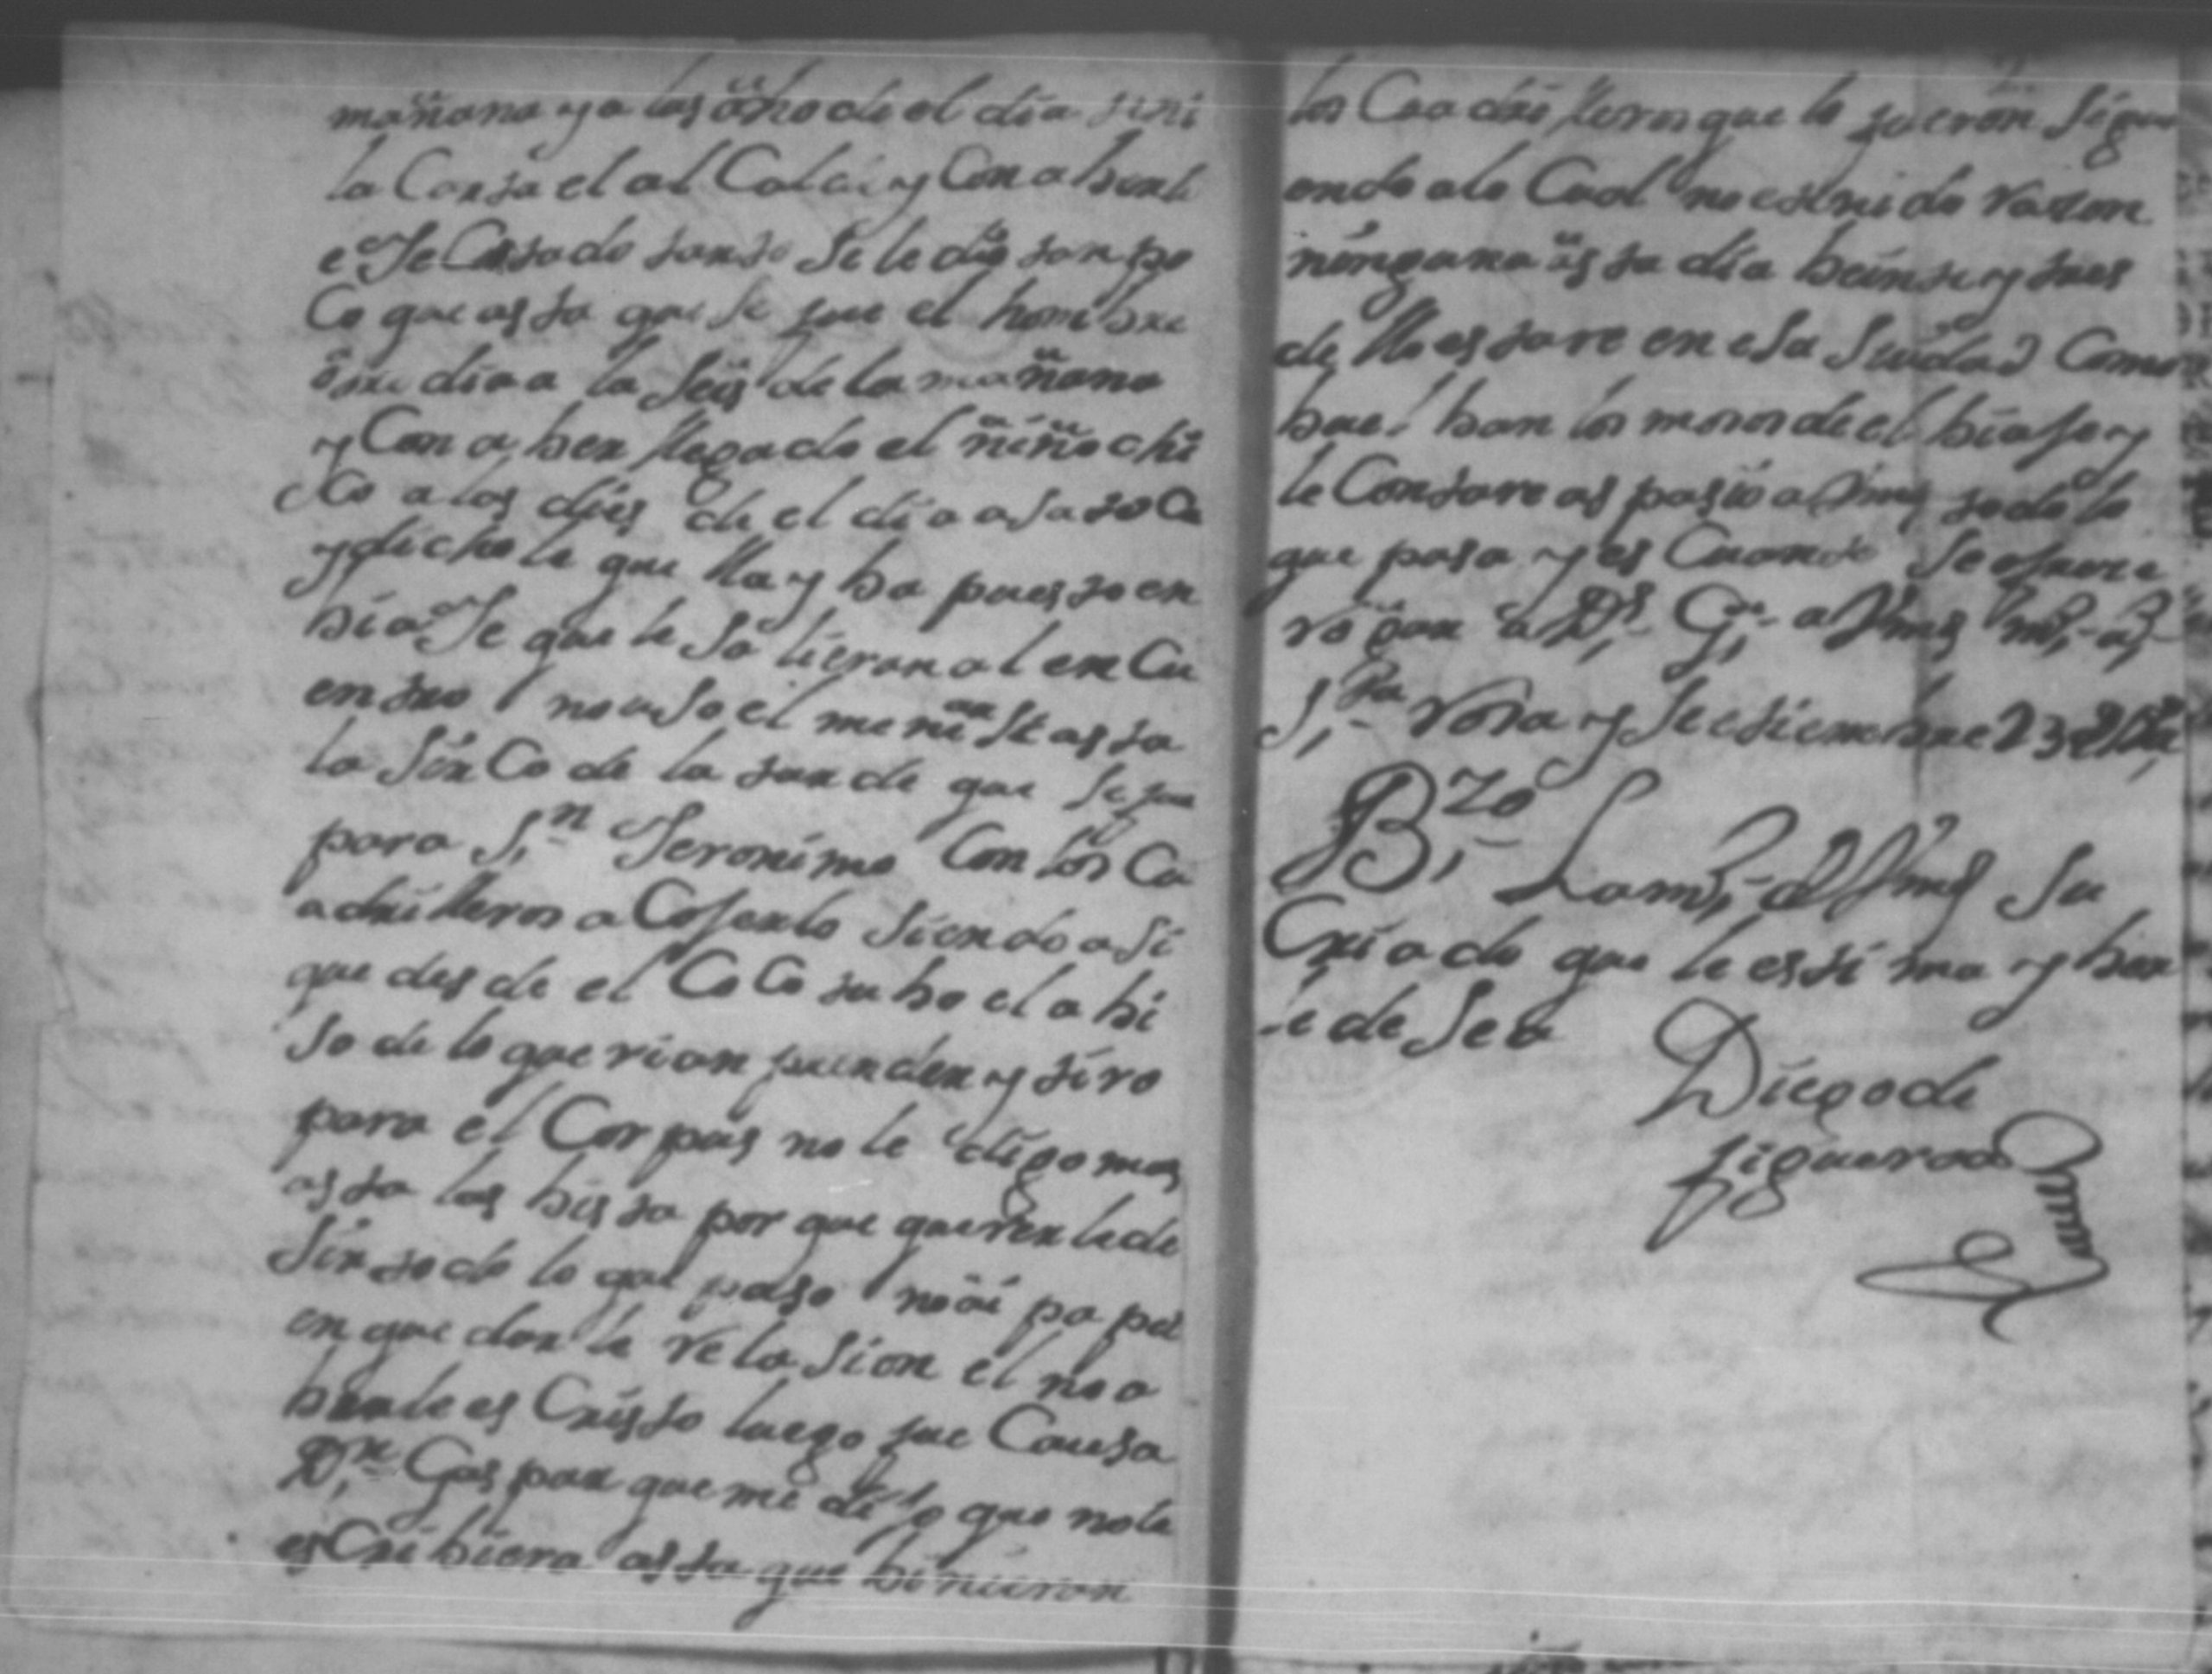 mañana y a las ocho de el dia tubi
la Carta el al Calde y Con a berle
eJeCutado tanto Se le dio tanpo
Co que asta que Se fue el hombre
otro dia a la Seis de la mañana
y Con a ber llegado el niño chi
Co a las dies de el dia a Sa to Ca
y dichole que lla y ba puesto en
biaJe que le Salieran al en Cu
entro no uSo el meneaSe asta
la SinCo de la tarde que Se fue
para Sn Jeronimo Con los Cu
adrilleros a CoJerlo Siendo aSi
que desde el CoCo tubo el abi
So de lo querian prender y tiro
para el Corpus no le digo mas
asta las bista por que quererle de
Sir todo lo que paso no ai papel
en que dar le relaSion el no a
berle esCrito luego fue Causa
Dn Gaspar que me diJo que no le
esCribiera asta que binieran
los Cuadrilleros que lo fueron Sigui
endo a lo Cual no e tenido rason
ninguna asta dia beinte y tres
de llo estare en eSa Siudad Como
buelban los mosos de el biaJe y
le Contare as pasio a Vmd todo lo
que pasa y es Cuanto Se ofrece
rogar a Ds Ge a Vmd ms as
Sta rosa y Setiembre 23
Bzo Lams de Vmd Su
Criado que le estima y ber
le deSea
Diego de
figueroa